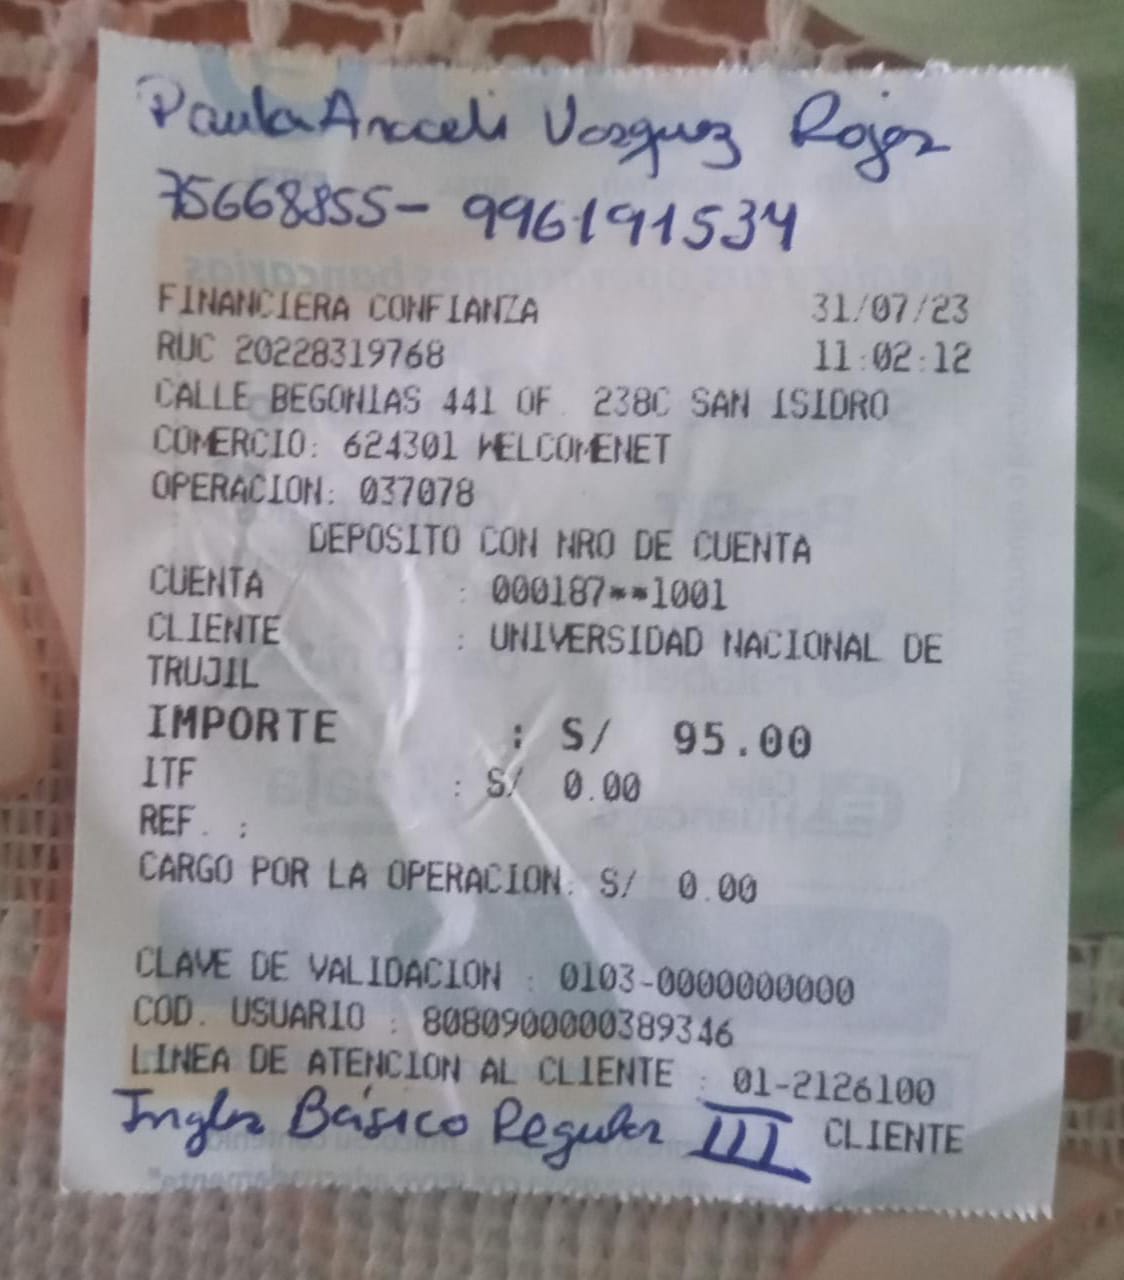 Paula Araceli Vasquez Rojas
75668855- 996191534
FINANCIERA CONFIANZA 31/07/23
RUC 20228319768 11:02:12
CALLE BEGONIAS 441 OF. 238C SAN ISIDRO
COMERCIO: 624301 WELCOMENET
OPERACION: 037078
DEPOSITO CON NRO DE CUENTA
CUENTA : 000187**1001
CLIENTE : UNIVERSIDAD NACIONAL DE
TRUJIL
IMPORTE : S/ 95.00
ITF : S/ 0.00
REF. :
CARGO POR LA OPERACION: S/ 0.00
CLAVE DE VALIDACION : 0103-0000000000
COD. USUARIO : 8080900000389346
LINEA DE ATENCION AL CLIENTE : 01-2126100
Ingles Básico Regular III CLIENTE